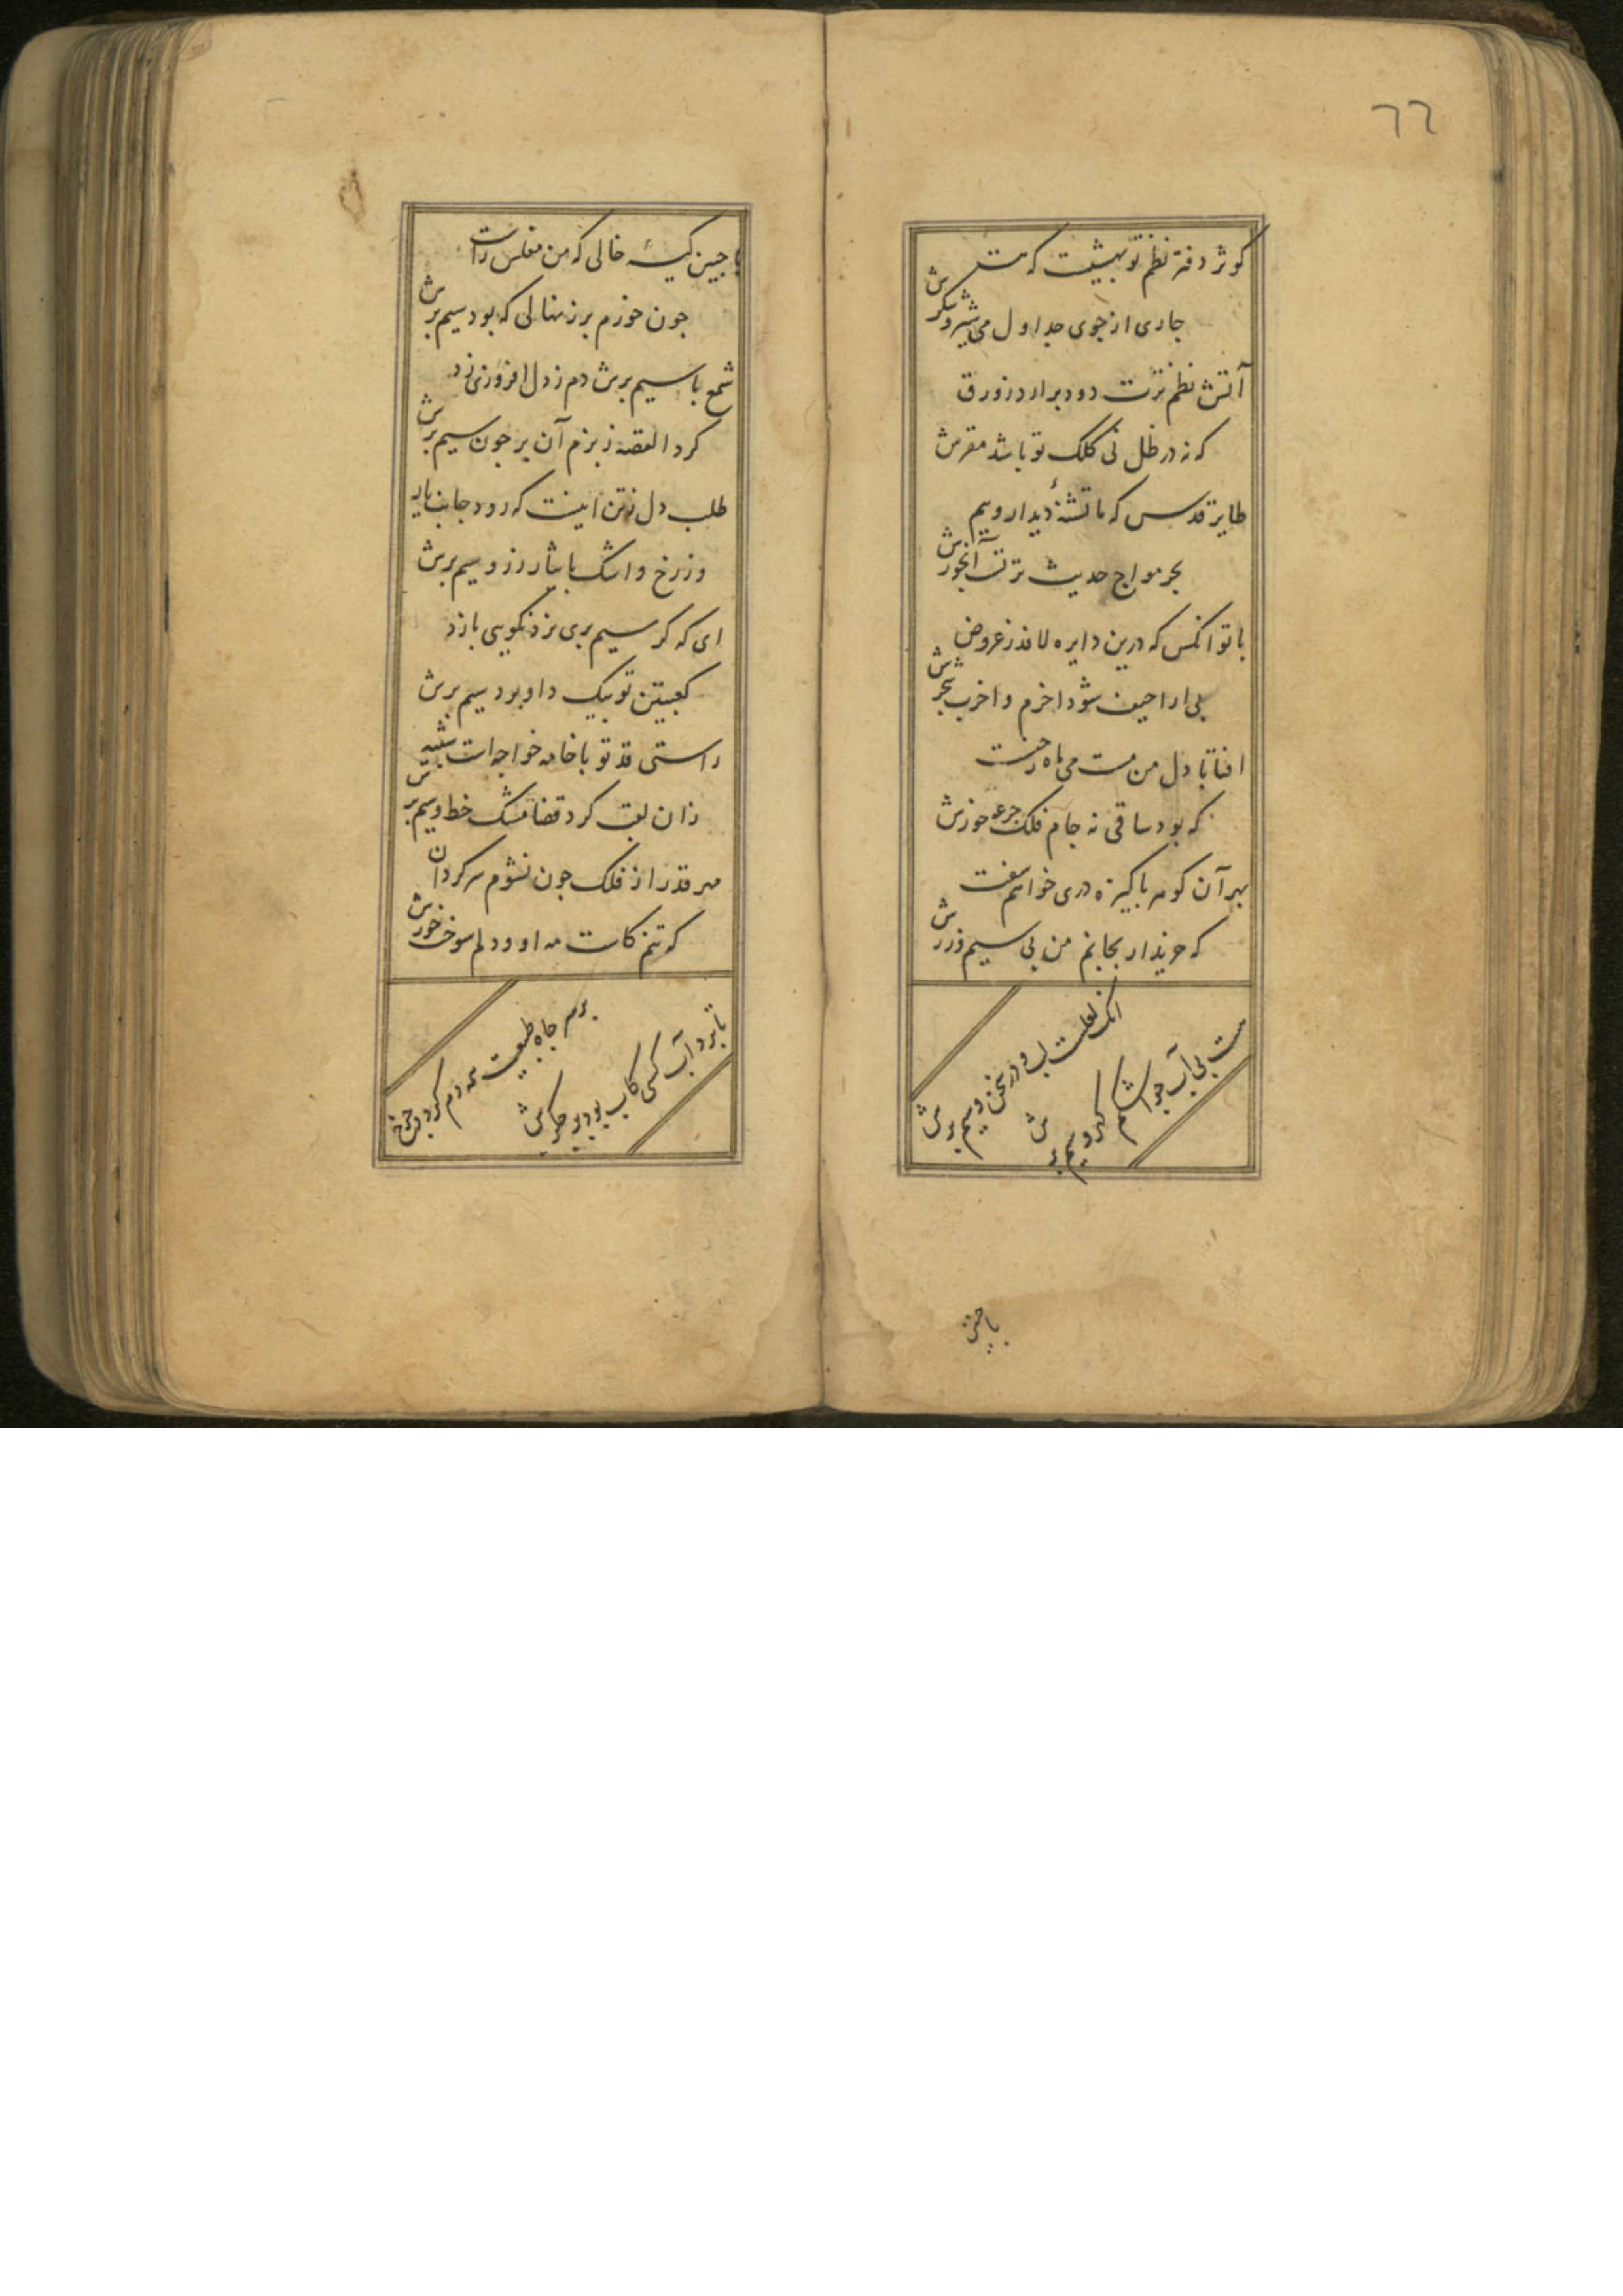 ٦٦
کوثر دفتر نظم تو بهشیست که هست
جاری از جوی جداول می و شیر و شکرش
آتش نظم ترت دود برارد ز ورق
که نه در ظل نی کلک تو باشد مقرش
طایر قدس که ما تشنهٔ دیدار ویم
بحر مواج حدیث ترتست آبخورش
با تو انکس که درین دایره لافد ز عروض
بی اراحیف شود اخرم و اخرب بحرش
افتابا دل من مست می ماه رخیست
که بود ساقی نه جام فلک جرعه خورش
بهر آن کوهر باکیزه دری خواهم سفت
که خریدار بجانم من بی سیم و زرش
انک لعلست لب و در سخن و سیم برش
هست بی آب جو اشکم کهر و سیم برش
با چنین
با جنین کیسهٔ خالی که من مفلس راست
جون خورم بر ز نهالی که بود سیم برش
شمع با سیم برش دم ز دل افروزی زد
کرد القصه ز بزم آن بر جون سیم برش
طلب دل ز تن اینست که رود جانب یار
وز رخ و اشک بایثار زر و سیم برش
ای که کر سیم بری نرد نکویی بازد
کعبتین تو بیک داو برد سیم برش
راستی قد تو با خامه خواجه است شبیه
زان لقب کرد قضا مشک خط و سیم برش
مهر قدر از فلک جون نشوم سرکردان
که تنم کاست مه او و دلم سوخت خورش
بر سر جاه طبیعت همه دم کردد چرخ
تا برد آب کسی کاب بود بر جکرش